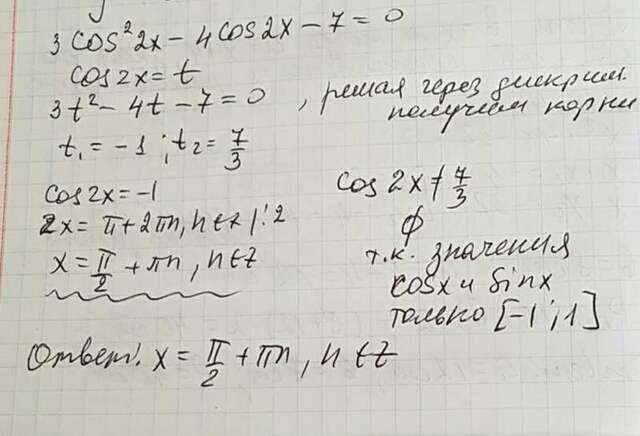 3 cos² 2x - 4 cos 2x - 7 = 0
cos 2x = t
3t² - 4t - 7 = 0 , решая через дискрим.
получим корни
t₁ = -1 ; t₂ = 7/3
cos 2x = -1
2x = π + 2πn, n ∈ z | : 2
x = π/2 + πn , n ∈ z
cos 2x ≠ 7/3
ф
т.к. значения
cosx и sinx
только [-1 ; 1]
Ответ: x = π/2 + πn , n ∈ z